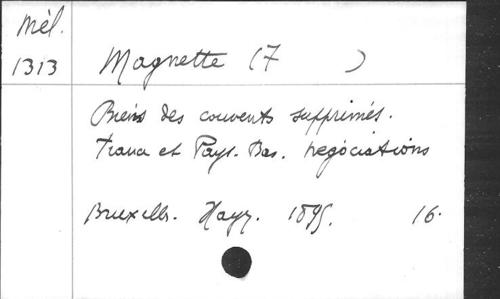 Mél.
1313
Magnette (F )
Biens des couvents supprimés.
France et Pays-Bas. Négociations
Bruxelles. Hayez. 1895. 16.